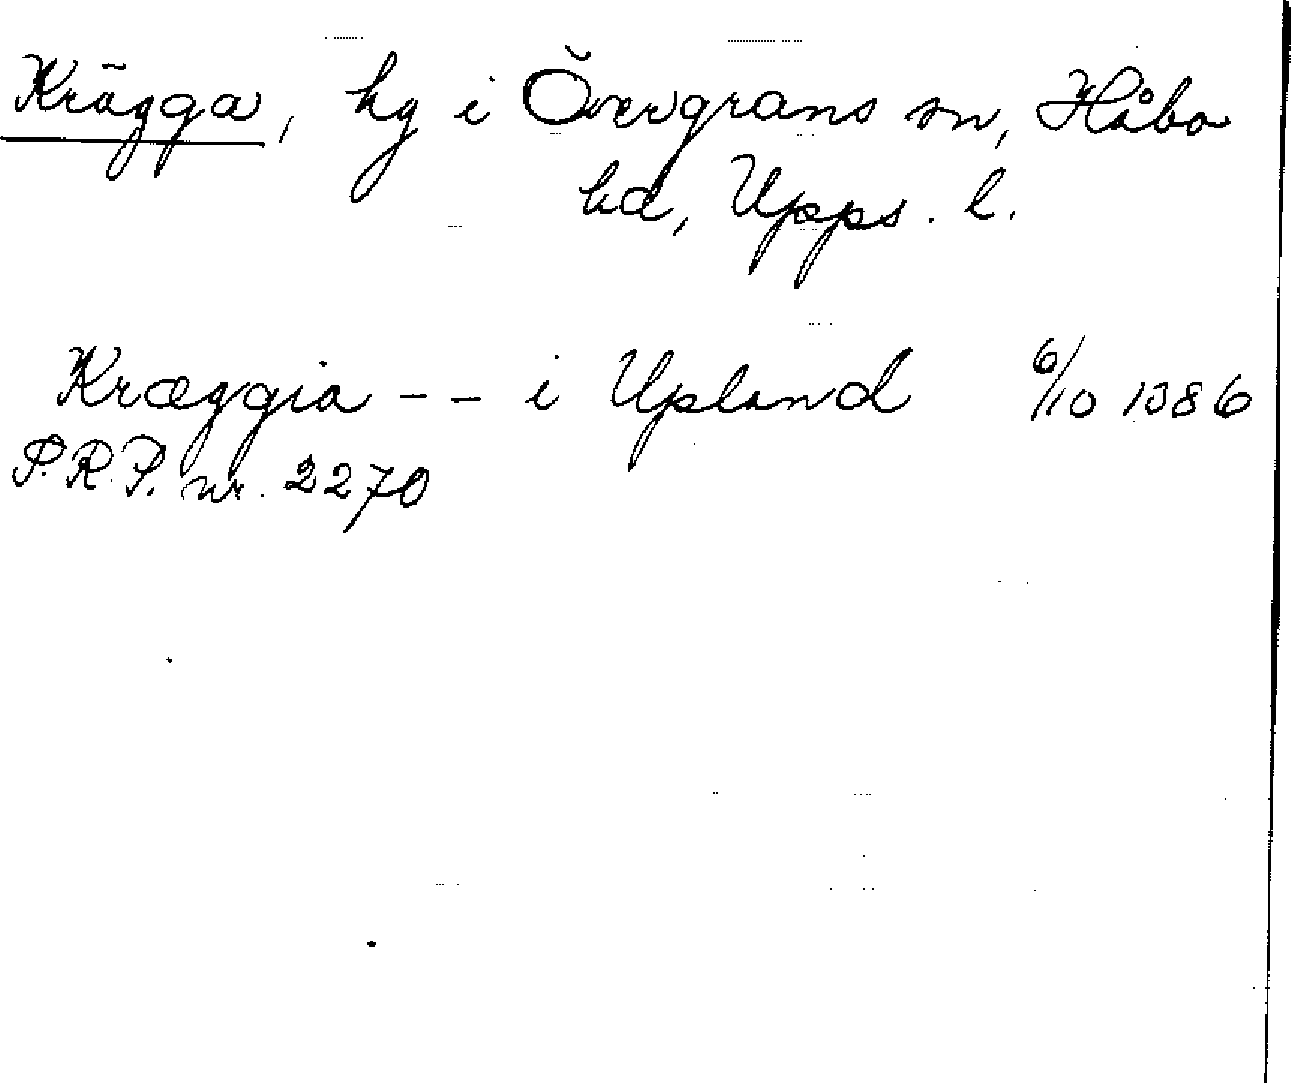 Krägga, hg i Övergrans sn, Håbo
hd, Upps. l.
Kræggia - - i Upland 6/10 1386
P.R.P. nr. 2270